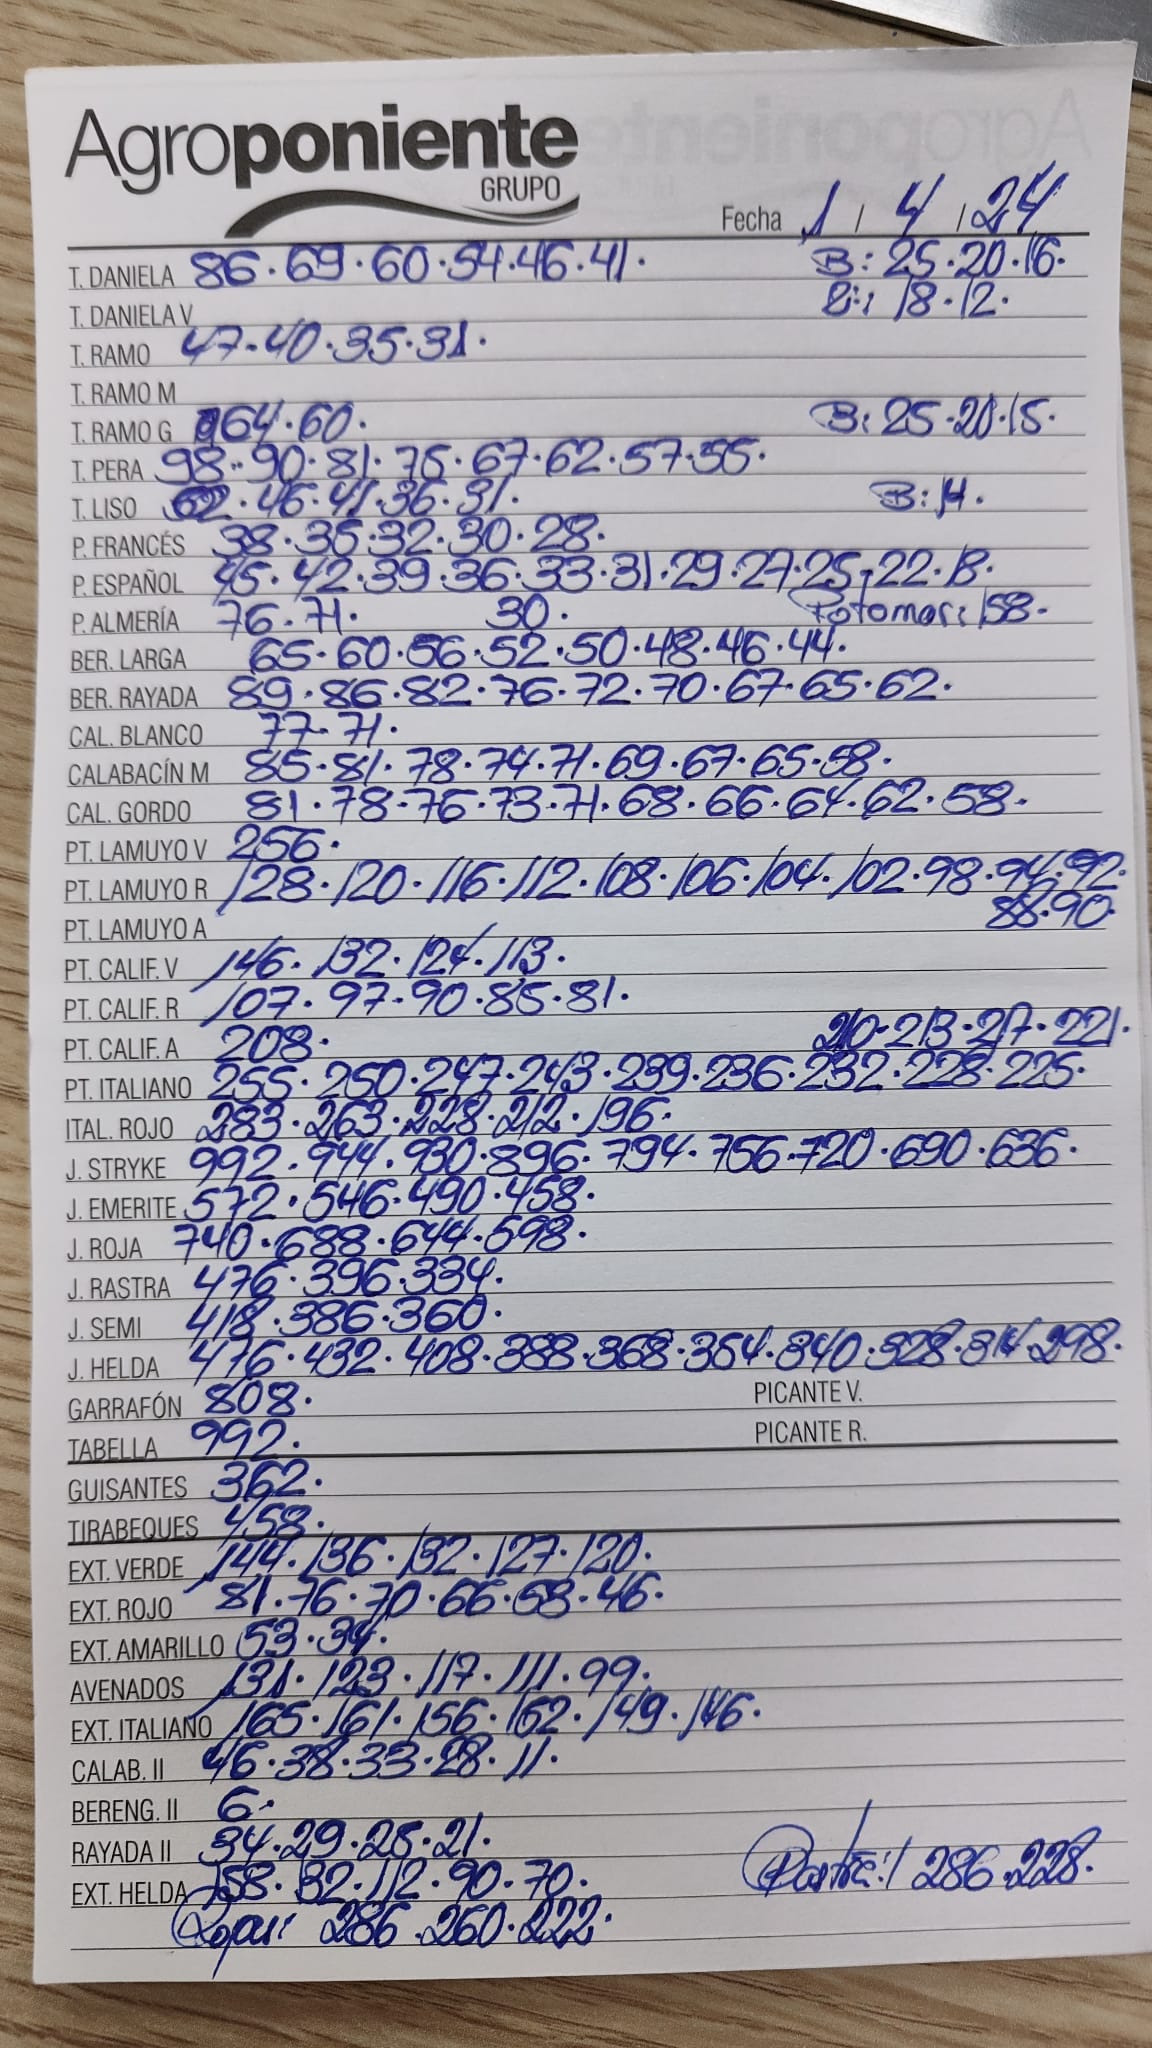 Agroponiente
GRUPO
Fecha 1 / 4 / 24
T. DANIELA 86·69·60·54·46·41· B: 25·20·16·
T. DANIELA V 18·12·
T. RAMO 47·40·35·31·
T. RAMO M
T. RAMO G 64·60· B: 25·20·15·
T. PERA 98·90·81·75·67·62·57·55·
T. LISO 62·46·41·36·31· B: 14·
P. FRANCÉS 38·35·32·30·28·
P. ESPAÑOL 45·42·39·36·33·31·29·27·25·22·18·
P. ALMERÍA 76·71· 30· 158·
BER. LARGA 65·60·56·52·50·48·46·44·
BER. RAYADA 89·86·82·76·72·70·67·65·62·
CAL. BLANCO 77·71·
CALABACÍN M 85·81·78·74·71·69·67·65·58·
CAL. GORDO 81·78·76·73·71·68·66·64·62·58·
PT. LAMUYO V 256·
PT. LAMUYO R 128·120·116·112·108·106·104·102·98·94·92·
PT. LAMUYO A 88·90·
PT. CALIF. V 146·132·124·113·
PT. CALIF. R 107·97·90·85·81·
PT. CALIF. A 208· 210·213·217·221·
PT. ITALIANO 255·250·247·243·239·236·232·228·225·
ITAL. ROJO 283·263·228·212·196·
J. STRYKE 992·944·930·896·794·756·720·690·636·
J. EMERITE 572·546·490·458·
J. ROJA 740·688·644·598·
J. RASTRA 476·396·334·
J. SEMI 418·386·360·
J. HELDA 476·432·408·388·368·354·340·328·314·298·
GARRAFÓN 808· PICANTE V.
TABELLA 992· PICANTE R.
GUISANTES 362·
TIRABEQUES 458·
EXT. VERDE 144·136·132·127·120·
EXT. ROJO 81·76·70·66·58·46·
EXT. AMARILLO 53·34·
AVENADOS 131·123·117·111·99·
EXT. ITALIANO 165·161·156·152·149·146·
CALAB. II 46·38·33·28·11·
BERENG. II 6·
RAYADA II 34·29·25·21·
EXT. HELDA 158·132·112·90·70· 286·228·
286·260·222·